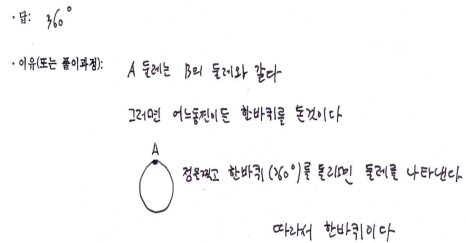 · 답: 360°
· 이유(또는 풀이과정): A 둘레는 B의 둘레와 같다
그러면 어느동전이든 한바퀴를 돈것이다
A
점을찍고 한바퀴(360°)를 돌리면 둘레를 나타낸다
따라서 한바퀴이다